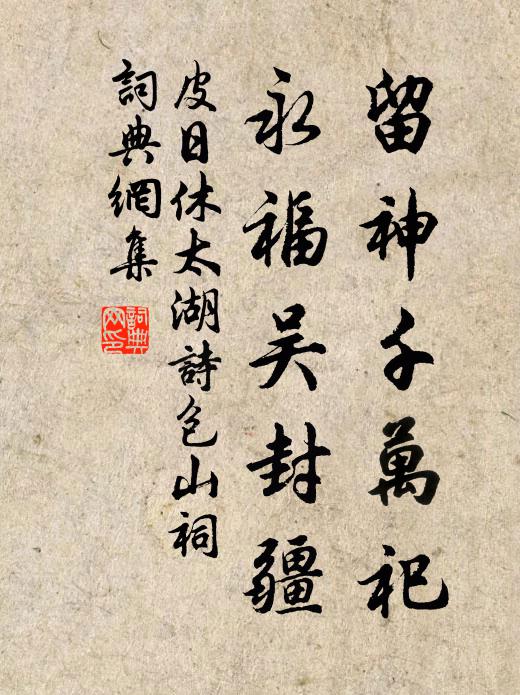 留神千萬祀
永福吴封疆
皮日休太湖詩包山祠
詞典網集
詞典
网印